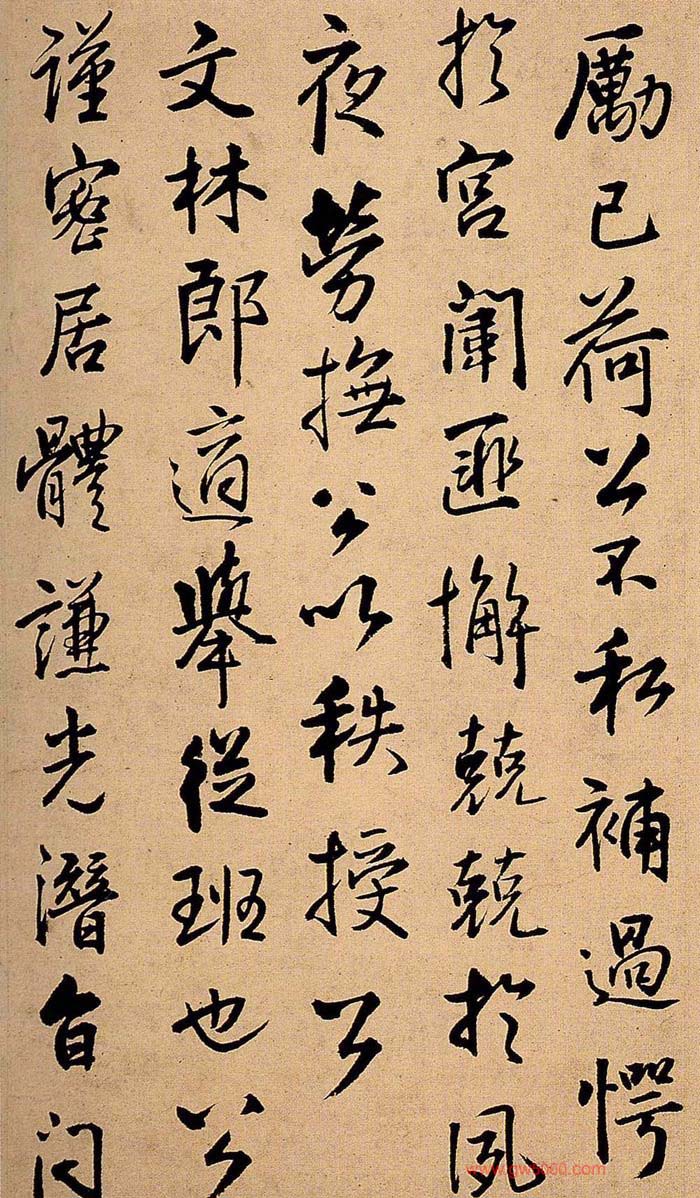 勵己荷公不私補過愕
於宮闈匪懈兢兢於夙
夜勞撫公以秩授公
文林郎適舉從班也公
謹密居體謙光潛旨